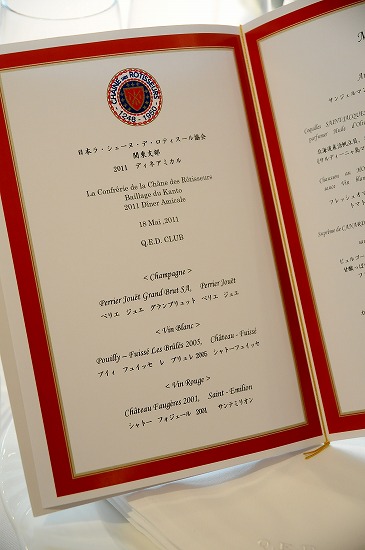 CHAÎNE DES RÔTISSEURS
1248 - 1950
日本ラ・シェーヌ・デ・ロティスール協会
関東支部
2011 ディネアミカル
La Confrérie de la Chaîne des Rôtisseurs
Bailliage du Kanto
2011 Dîner Amicale
18 Mai ,2011
Q.E.D. CLUB
< Champagne >
Perrier Jouët Grand Brut SA, Perrier Jouët
ペリエ ジュエ グランブリュット ペリエ ジュエ
< Vin Blanc >
Pouilly – Fuissé Les Brûlés 2005, Château - Fuissé
プイィ フュイッセ レ ブリュレ 2005 シャトーフュイッセ
< Vin Rouge >
Château Faugères 2001, Saint - Emilion
シャトー フォジェール 2001 サンテミリオン
M
サンジェルマン
Coquilles SAINT-JACQUES
parfumer Huile d'Oliv
北海道産活帆立貝、
Chausson au
sauce Vin
フレッシュオ
トマト
Suprême de CANARD
ピュルゴー